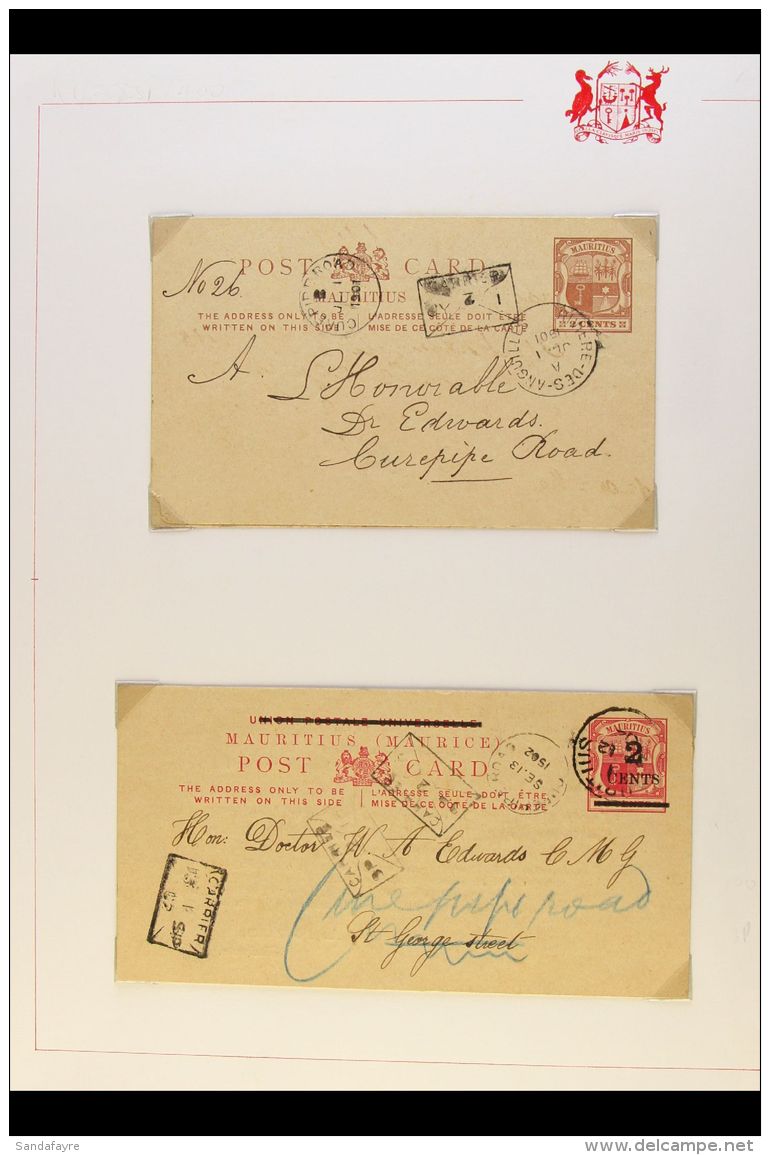 POST CARD
MAURITIUS
THE ADDRESS ONLY TO BE
WRITTEN ON THIS SIDE
L'ADRESSE SEULE DOIT ÊTRE
MISE DE CE CÔTÉ DE LA CARTE
MAURITIUS
2 CENTS
No 26
CUREPIPE ROAD
JL 1
1901
CARRIER
1 2
RIVIERE-DES-ANGUILLES
A
JL 1
1901
A. L'Honorable
Dr Edwards.
Curepipe Road.
UNION POSTALE UNIVERSELLE
MAURITIUS (MAURICE)
POST CARD
THE ADDRESS ONLY TO BE
WRITTEN ON THIS SIDE
L'ADRESSE SEULE DOIT ÊTRE
MISE DE CE CÔTÉ DE LA CARTE
MAURITIUS
2
CENTS
SE 13
CARRIER
CARRIER
CARRIER
Hon: Doctor W. A Edwards C M G
Curepipe road
St George street
Sandafayre
delcampe.net